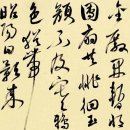 金殿開暫將
團扇共徘徊玉
顏不及寒鴉
色猶帶
昭陽日影來